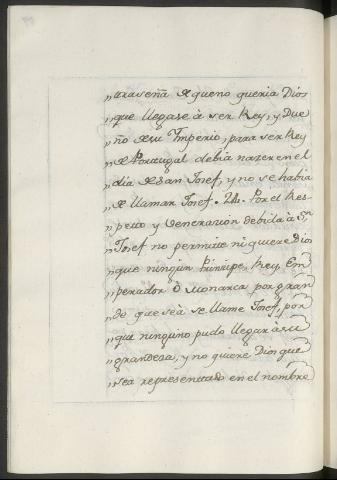 „traseña de que no queria Dios
„que llegase à ser Rey, y Due
„ño de su Imperio, para ser Rey
„de Portugal debia nazer en el
„dia de San Josef, y no se habia
„de llamar Josef. 24. Por el Res-
„peto y Veneracion debida à Sn
„Josef no permite ni quiere Dios
„que ningun Principe, Rey, Em
„perador ò Monarca por gran
„de que seà se llame Josef, por
„que ninguno pudo llegar à su
„grandesa, y no quiere Dios que
„sea representado en el nombre